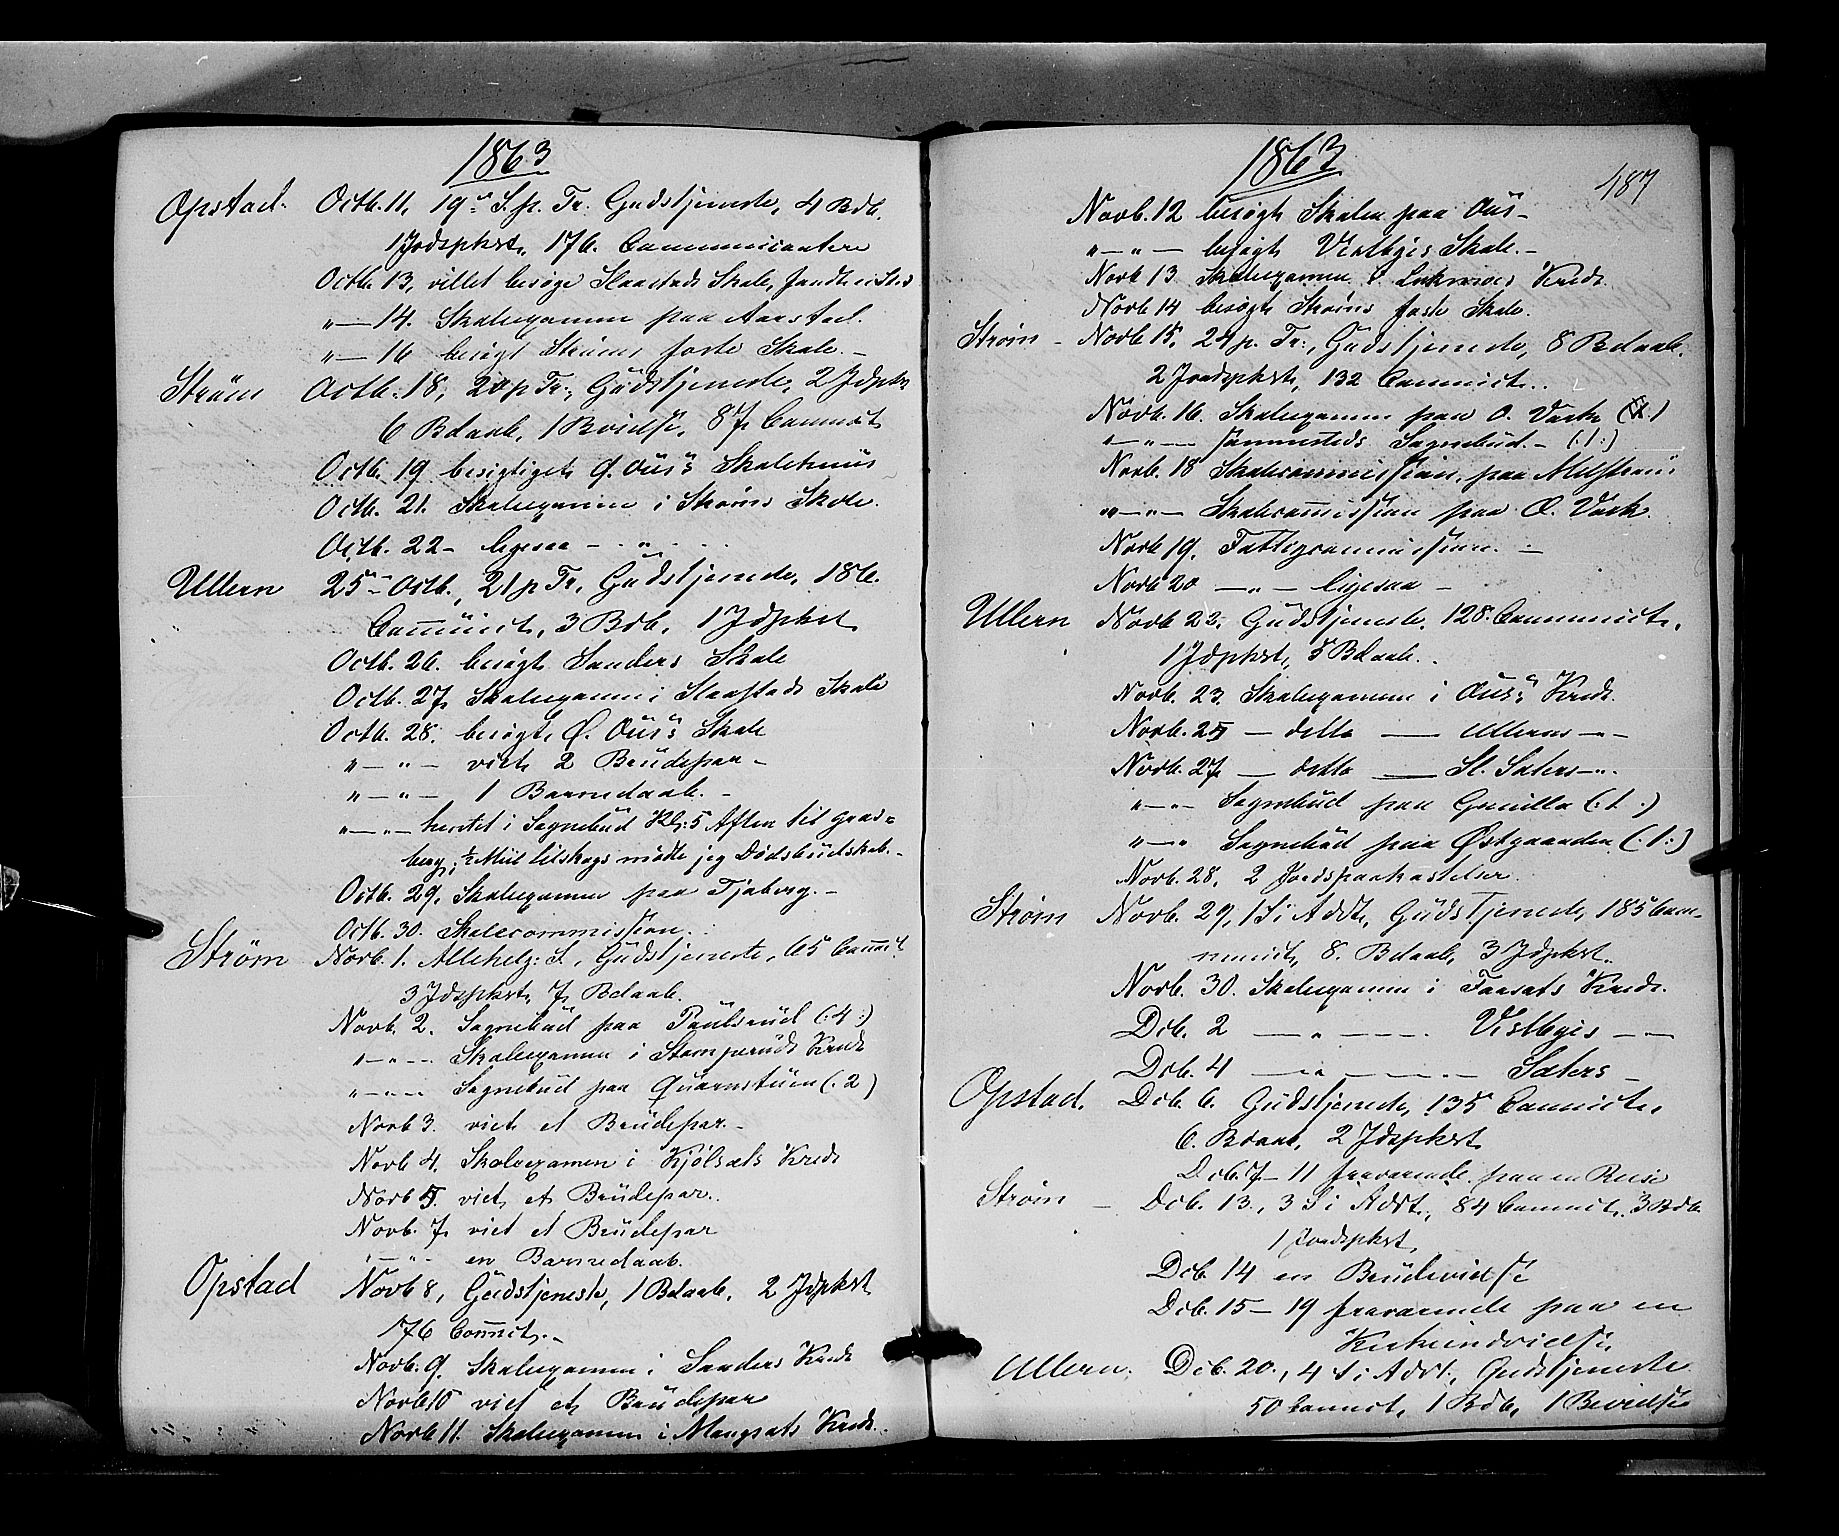 1863
Opstad. Octb. 11, 19de S. p. Tr. Gudstjeneste, 4 Bdb.
1 Jodspkst, 176. Communicantere
Octb. 13, villet besøge Slaastads Skole,
"—14. Skoleexamen paa Aarstad.
"—16 besøgt Strøms faste Skole.—
Strøm Octb. 18, 20 p Tr., Gudstjeneste, 2 Jdpkst
6 Bdaab, 1 Bvielse, 87 Commct
Octb. 19 besigtiget Ø. Ous's Skolehuus
Octb. 21. Skoleexamen i Strøms Skole.
Octb. 22— ligesaa — . " .
Ullern 25de Octb., 21 p Tr, Gudstjeneste, 186.
Communct, 3 Bdb, 1 Jdpkst
Octb. 26. besøgt Sanders Skole
Octb. 27, Skoleexamen i Slaastads Skole
Octb. 28. besøgt Ø. Ous's Skole
"—"— viet 2 Brudepar—
"—"— 1 Barnedaab.—
"—"— hentet i Sognebud Kl: 5 Aften til Gras=
berg, 1/2 Miil tilskogs mødte jeg Dødsbudskab.—
Octb. 29, Skoleexamen paa Tjaberg.—
Octb. 30. Skolecommission.
Strøm Novb. 1. Allehelg: S., Gudstjeneste, 65 Commct.
3 Jdspkst, 7 Bdaab.
Novb. 2. Sognebud paa Paulsrud (:4:)
"—"— Skoleexamen i Stomperuds Kreds
"—"— Sognebud paa Quarnstuen (:2)
Novb 3. viet et Brudepar.—
Novb 4. Skoleexamen i Kjølsæts Kreds
Novb 5. viet et Brudepar.
Novb. 7, viet et Brudepar
"—"— en Barnedaab.
Opstad Novb 8, Gudstjeneste, 1 Bdaab, 2 Jdpkst
176 Commct.—
Novb. 9. Skoleexamen i Sanders Kreds
Novb 10 viet et Brudepar
Novb 11. Skoleexamen i Mangsæts Kreds.
1863
187
Novb. 12 besøgt Skolen paa Ous—
"—"— besøgt Vestbyes Skole.—
Novb 13. Skoleexamen i Kreds
Novb 14 besøgt Strøms faste Skole.
Strøm— Novb 15, 24 p. Tr., Gudstjeneste, 8 Bdaab.
2 Jordspkst, 132 Commct..
Novb. 16. Skoleexamen paa O. Værk
"—"— sammesteds Sognebud.— (:1:)
Novb. 18 Skolecommission, paa
"—"— Skolecommission paa O. Værk.
Novb 19, Fattigcommission.—
Novb 20 —"— ligesaa—
Ullern Novb 22, Gudstjeneste, 128. Communct,
1 Jdpkst, 5 Bdaab.
Novb. 23. Skoleexamen i Ous's Kreds.
Novb. 25 — detto — Ullerns —"—
Novb. 27, — detto — Sl. Sæters —"—
"—"— Sognebud paa Gunilla (:1:)
"—"— Sognebud paa Østgaarden (:1:)
Novb. 28, 2 Jordspaakastelser.
Strøm Novb. 29, 1 S i Advt, Gudstjeneste, 185 Com-
munct, 8. Bdaab, 3 Jdpkst.
Novb. 30. Skoleexamen i Faasæts Kreds.
Dcb. 2 —"— Vestbyes —"—
Dcb. 4 —"— Sæters—
Opstad. Dcb. 6. Gudstjeneste, 135 Commnct,
6. Bdaab, 2 Jdspkst
Dcb. 7—11 fraværende paa en Reise
Strøm— Dcb. 13., 3 S i Advt., 84 Commct, 3 Bdb.
1 Jordspkst,
Dcb. 14 en Brudevielse
Dcb. 15—19 fraværende paa en
Kirkeindvielse,
Ullern. Dcb. 20., 4 S i Advt, Gudstjeneste
50 Commct, 1 Bdb, 1 Bvielse